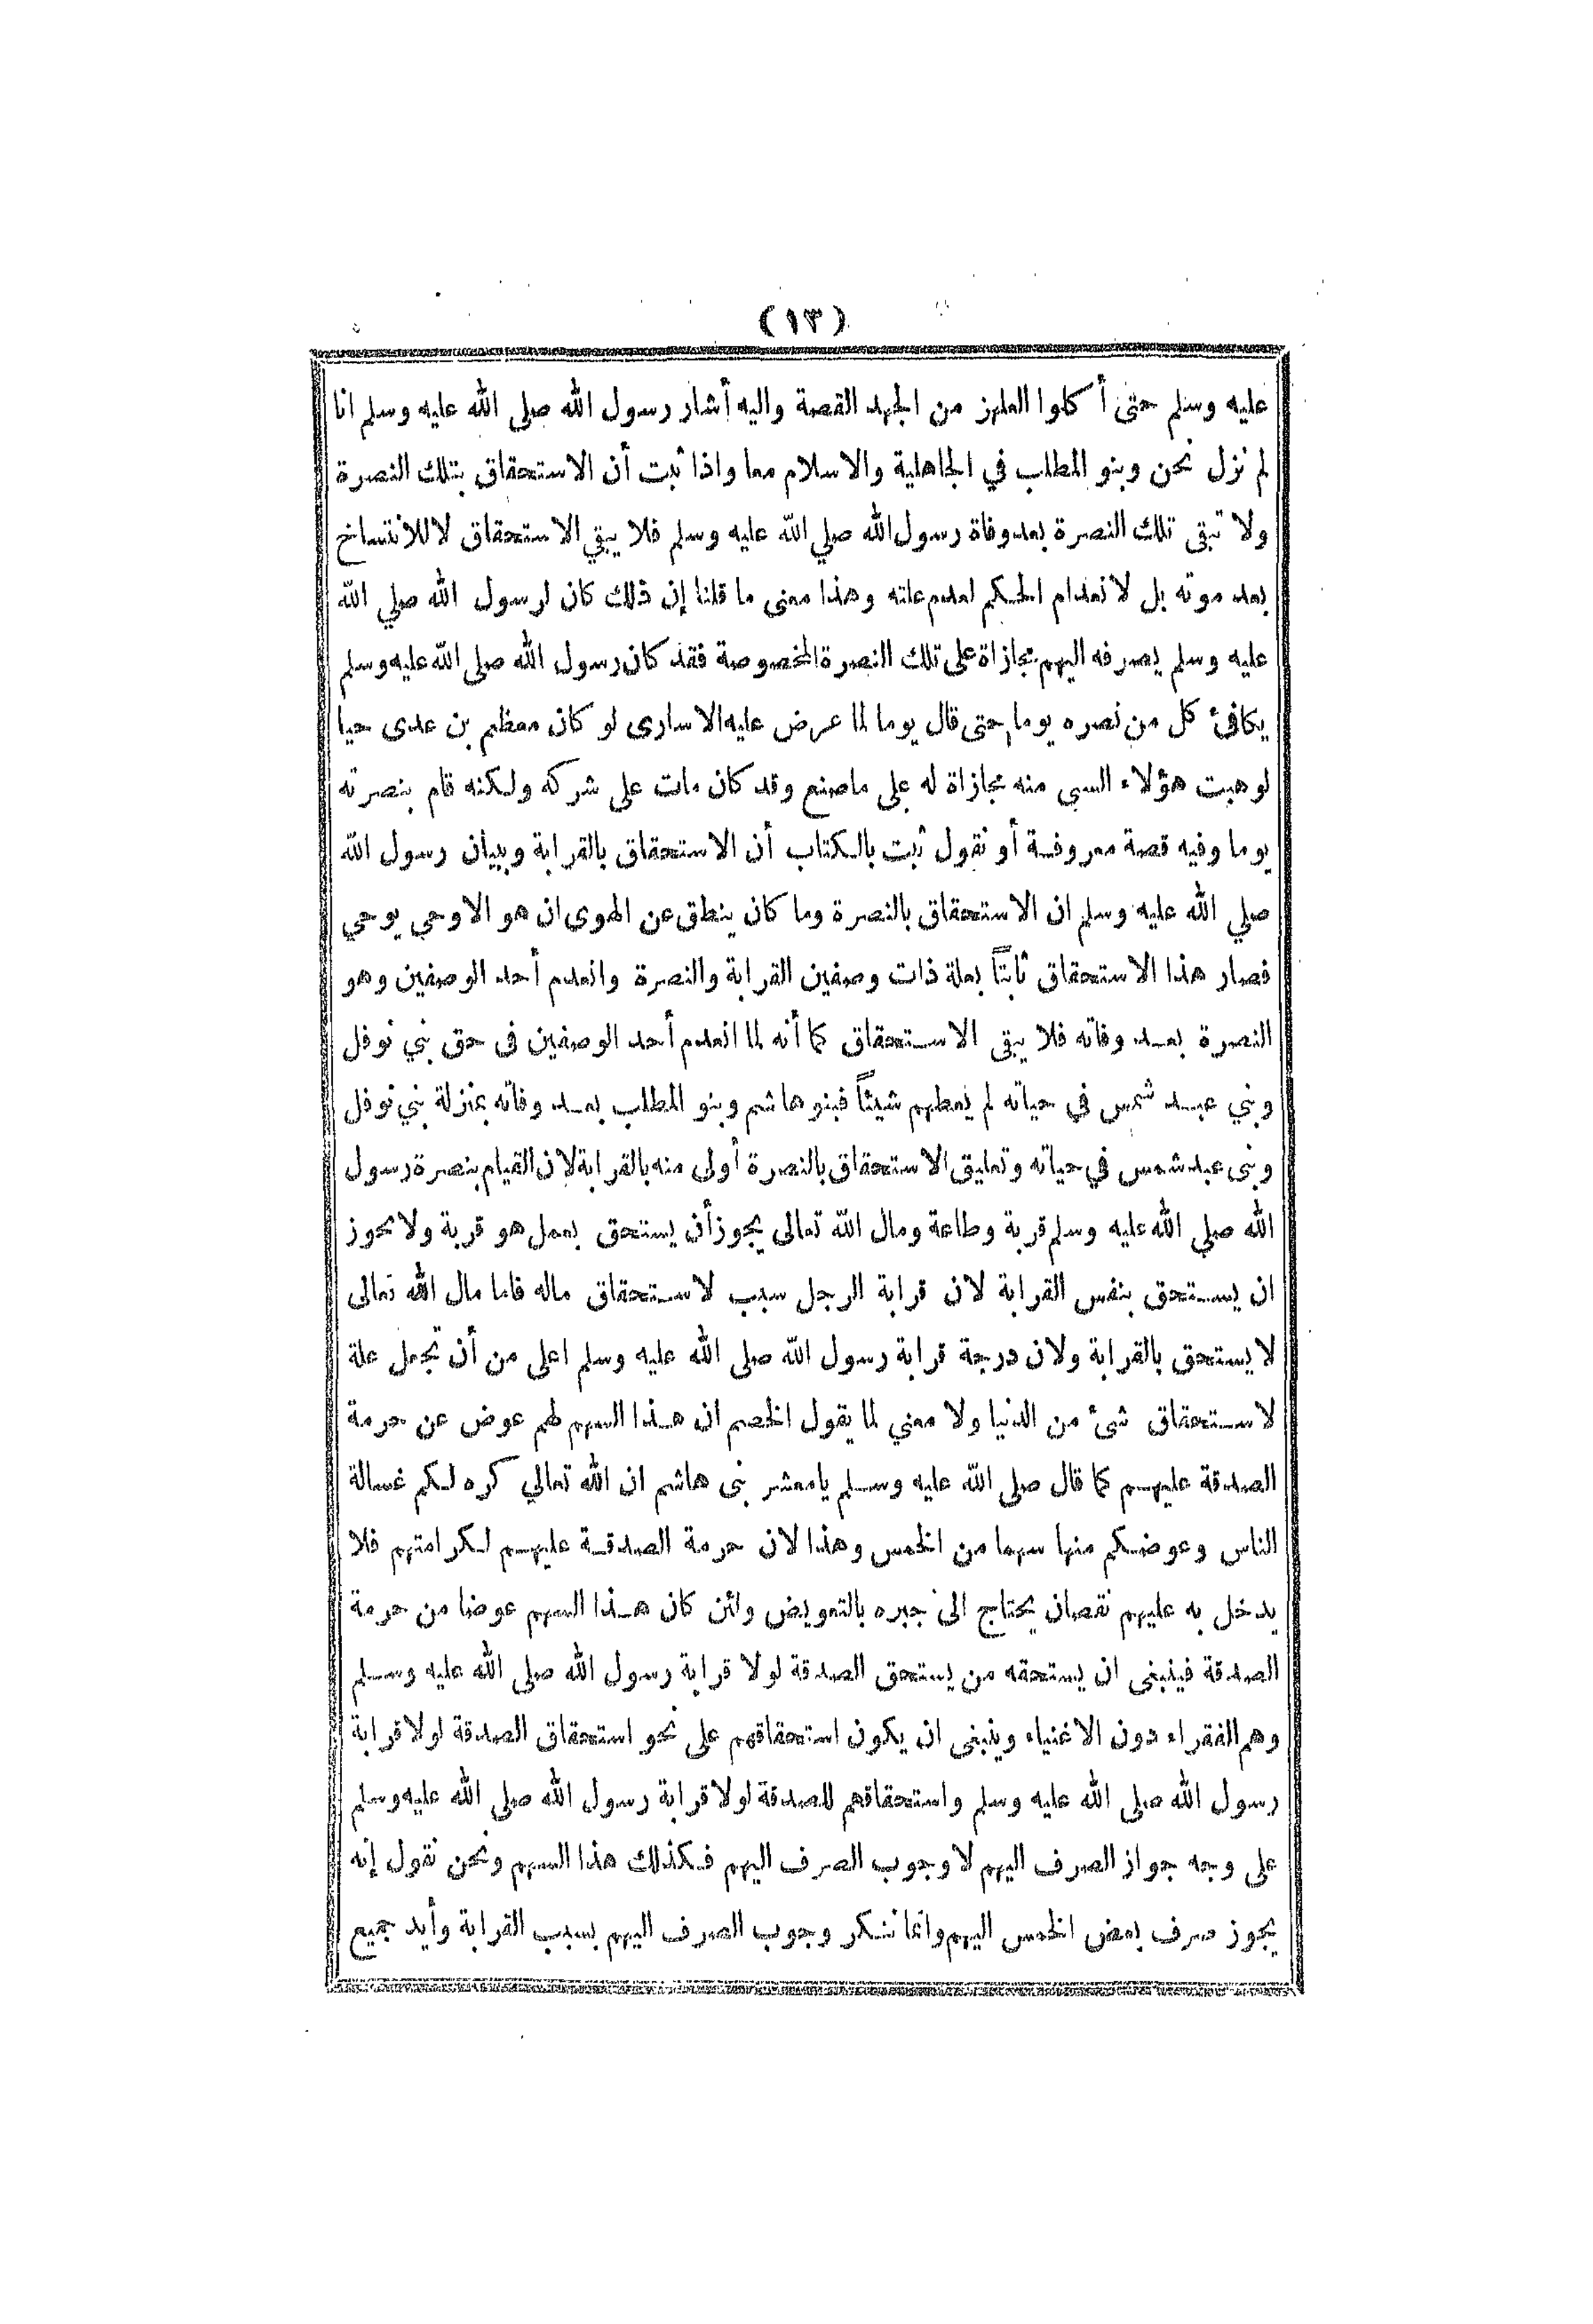 (١٣)
عليه وسلم حتى أكلوا العلهز من الجهد القصة واليه أشار رسول الله صلى الله عليه وسلم انا
لم نزل نحن وبنو المطلب في الجاهلية والاسلام معا واذا ثبت أن الاستحقاق بتلك النصرة
ولا تبقى تلك النصرة بعد وفاة رسول الله صلي الله عليه وسلم فلا يبقي الاستحقاق لا للانتساخ
بعد موته بل لانعدام الحكم لعدم علته وهذا معنى ما قلنا إن ذلك كان لرسول الله صلي الله
عليه وسلم يصرفه اليهم مجازاة على تلك النصرة المخصوصة فقد كان رسول الله صلى الله عليه وسلم
يكافئ كل من نصره يوما حتى قال يوما لما عرض عليه الاسارى لو كان معظم بن عدى حيا
لوهبت هؤلاء السبي منه مجازاة له على ما صنع وقد كان مات على شركه ولكنه قام بنصرته
يوما وفيه قصة معروفة أو نقول ثبت بالكتاب أن الاستحقاق بالقرابة وببيان رسول الله
صلي الله عليه وسلم ان الاستحقاق بالنصرة وما كان ينطق عن الهوى ان هو الا وحي يوحي
فصار هذا الاستحقاق ثابتاً بعلة ذات وصفين القرابة والنصرة وانعدم أحد الوصفين وهو
النصرة بعد وفاته فلا يبقى الاستحقاق كما أنه لما انعدم أحد الوصفين فى حق بني نوفل
وبني عبد شمس في حياته لم يعطهم شيئاً فبنو هاشم وبنو المطلب بعد وفاته بمنزلة بني نوفل
وبنى عبد شمس في حياته وتعليق الاستحقاق بالنصرة أولى منه بالقرابة لان القيام بنصرة رسول
الله صلي الله عليه وسلم قربة وطاعة ومال الله تعالى يجوز أن يستحق بعمل هو قربة ولا يجوز
ان يستحق بنفس القرابة لان قرابة الرجل سبب لاستحقاق ماله فاما مال الله تعالى
لا يستحق بالقرابة ولان درجة قرابة رسول الله صلى الله عليه وسلم اعلى من أن تجعل علة
لاستحقاق شئ من الدنيا ولا معني لما يقول الخصم ان هذا السهم لهم عوض عن حرمة
الصدقة عليهم كما قال صلى الله عليه وسلم يا معشر بنى هاشم ان الله تعالي كره لكم غسالة
الناس وعوضكم منها سهما من الخمس وهذا لان حرمة الصدقة عليهم لكرامتهم فلا
يدخل به عليهم نقصان يحتاج الى جبره بالتعويض ولئن كان هذا السهم عوضا من حرمة
الصدقة فينبغى ان يستحقه من يستحق الصدقة لولا قرابة رسول الله صلى الله عليه وسلم
وهم الفقراء دون الاغنياء وينبغى ان يكون استحقاقهم على نحو استحقاق الصدقة لولا قرابة
رسول الله صلى الله عليه وسلم واستحقاقهم للصدقة لولا قرابة رسول الله صلى الله عليه وسلم
على وجه جواز الصرف اليهم لا وجوب الصرف اليهم فكذلك هذا السهم ونحن نقول إنه
يجوز صرف بعض الخمس اليهم وانما ننكر وجوب الصرف اليهم بسبب القرابة وأيد جميع